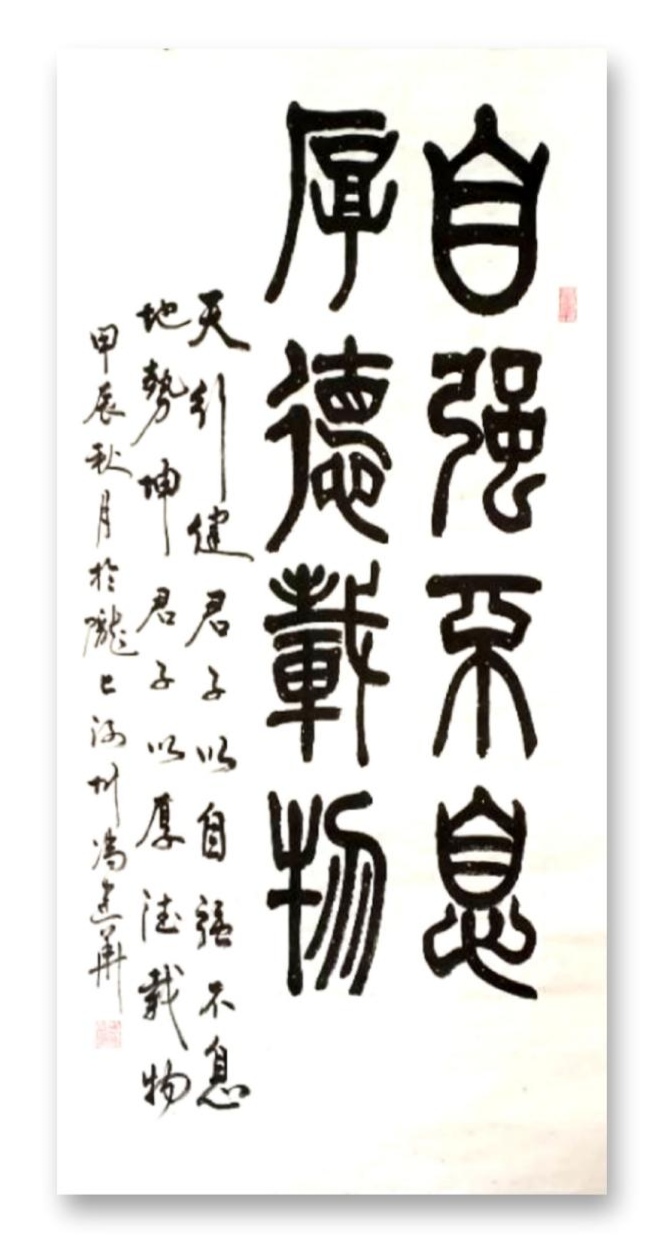 自强不息
厚德載物
天行健君子以自强不息
地勢坤君子以厚德載物
甲辰秋月於隴上河州馮建華